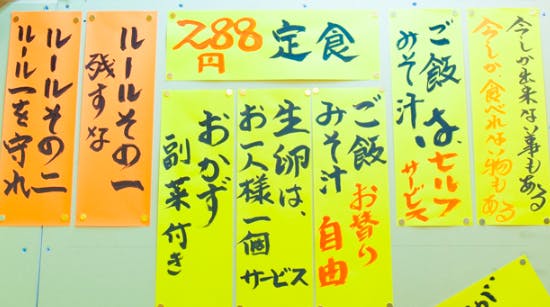 今しか出来ない事もある
今しか食べれない物もある
ご飯
みそ汁
は、セルフ
サービス
288円 定食
ご飯
みそ汁
お替り
自由
生卵は、
お一人様一個
サービス
おかず
副菜付き
ルールその一
残すな
ルールその二
ルール一を守れ